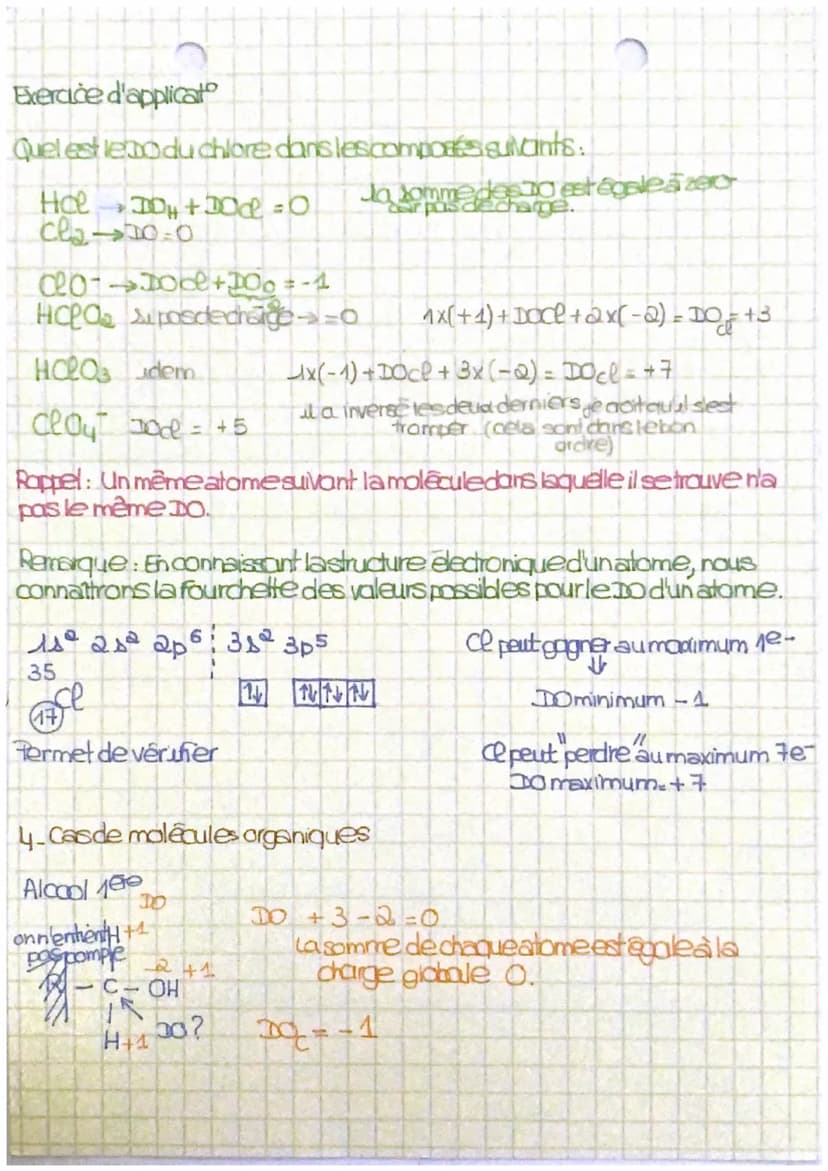 Exercice d'applicat°
Quel est le DO du chlore dans les composés suivants :
HCl → DOH + DOCl = 0 la somme des DO est égale à zéro
car pas de charge.
Cl2 → DO = 0
ClO- → DOCl + DOO = -1
HClO2 si pas de charge → = 0 1x(+1) + DOCl + 2x(-2) = DOCl = +3
HClO3 idem 1x(-1) + DOCl + 3x(-2) = DOCl = +7
ClO4- DOCl = +5 il a inversé les deux derniers je croit qu'il s'est
tromper (cela sont dans le bon
ordre)
Rappel : Un même atome suivant la molécule dans laquelle il se trouve n'a
pas le même DO.
Remarque : En connaissant la structure électronique d'un atome, nous
connaîtrons la fourchette des valeurs possibles pour le DO d'un atome.
1s2 2s2 2p6 3s2 3p5 Cl peut gagner au maximum 1e-
⇓
35
Cl ↑↓ ↑↓ ↑↓ ↑↓ DO minimum - 1
17
Permet de vérifier Cl peut "perdre" au maximum 7e-
DO maximum = + 7
4 - Cas de molécules organiques
Alcool 1ère
DO
H +1 DO + 3 - 2 = 0
on n'en tient
pas compte La somme de chaque atome est égale à la
charge globale 0.
-2 +1
R - C - OH
H +1 DO ? DOC = - 1